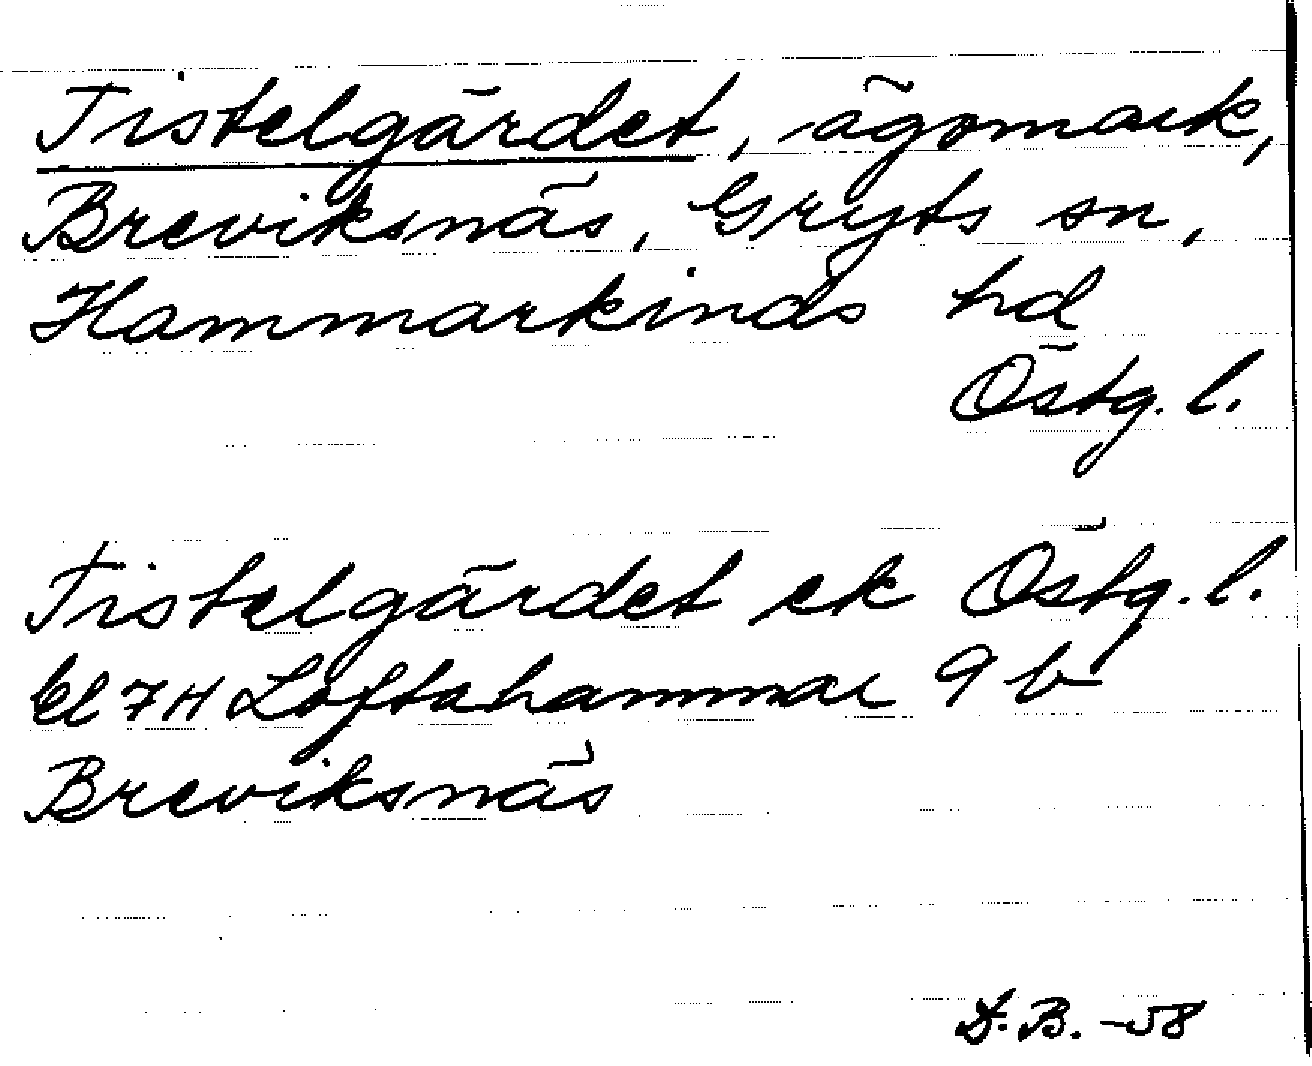 Tistelgärdet, ägomark,
Breviksnäs, Gryts sn,
Hammarkinds hd
Östg. l.
Tistelgärdet ek Östg. l.
bl 7H Loftahammar 9 b
Breviksnäs
B. -58